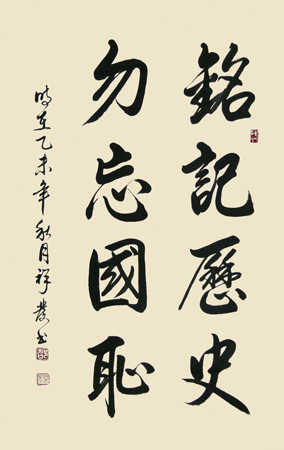 銘記歷史
勿忘國恥
時在乙未年秋月祥發書